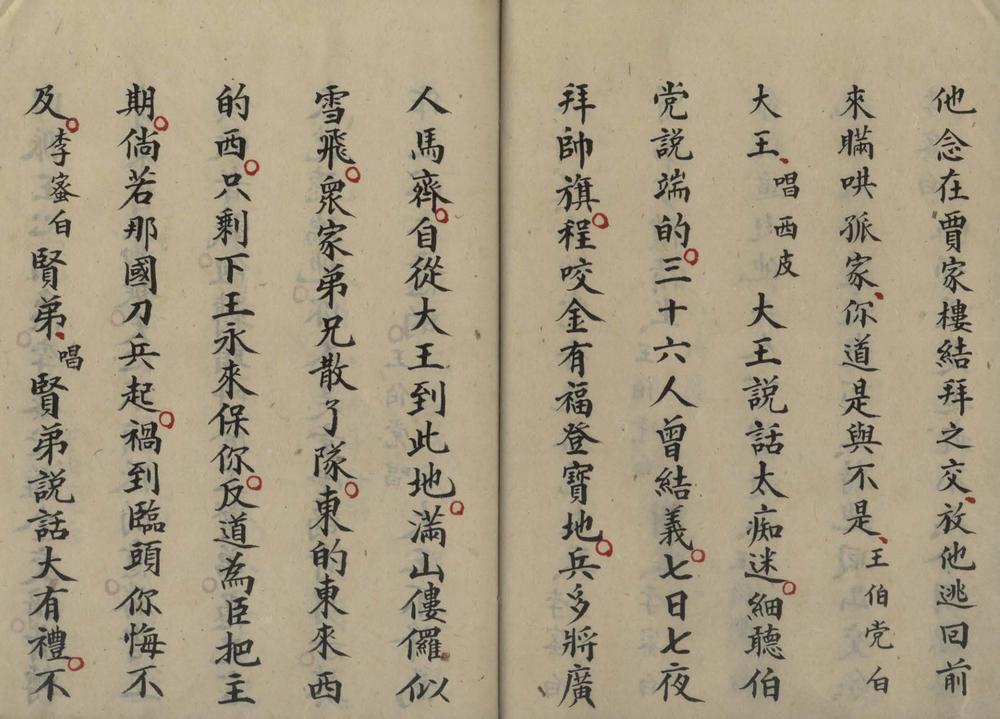 他念在賈家樓結拜之交、放他逃回前
來瞞哄孤家、你道是與不是、王伯党白
大王、唱西皮大王説話太痴迷。細聽伯
党説端的。三十六人曾結義。七日七夜
拜帥旗。程咬金有福登寳地。兵多將廣
人馬齊。自從大王到此地。滿山僂儸似
雪飛。衆家弟兄散了隊。東的東來西
的西。只剩下王永來保你。反道為臣把主
期。倘若那國刀兵起。禍到臨頭你悔不
及。李蜜白賢弟、唱賢弟説話大有禮。不